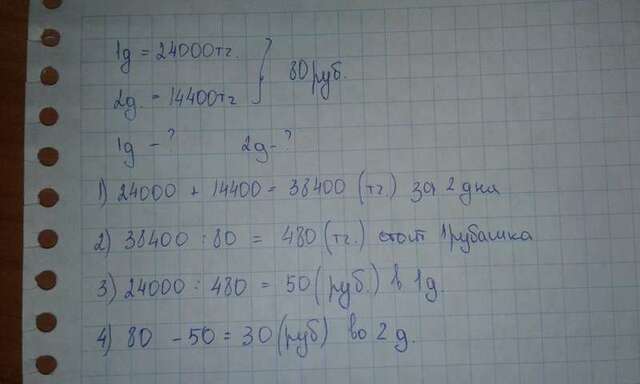 1д = 24000тг.
80 руб.
2д. = 14400тг
1д - ? 2д - ?
1) 24000 + 14400 = 38400 (тг.) за 2 дня
2) 38400 : 80 = 480 (тг.) стоит 1 рубашка
3) 24000 : 480 = 50 (руб.) в 1д.
4) 80 - 50 = 30 (руб) во 2 д.